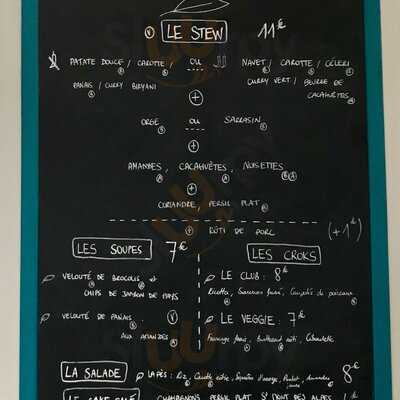 V LE STEW 11€
PATATE DOUCE / CAROTTE / OU NAVET / CAROTTE / CÉLERI
PANAIS / CURRY BIRYANI CURRY VERT / BEURRE DE
CACAHUÈTES
+
ORGE OU SARRASIN
+
AMANDES, CACAHUÈTES, NOISETTES
+
CORIANDRE, PERSIL PLAT
+ RÔTI DE PORC (+1€)
LES SOUPES 7€
VELOUTÉ DE BROCOLIS et
CHIPS DE JAMBON DE PAYS
VELOUTÉ DE PANAIS V
AUX AMANDES
LES CROKS
LE CLUB : 8€
Ricotta,
LE VEGGIE : 7€
Fromage frais, Butternut rôti, Ciboulette
LA SALADE LAPÉS : Riz, Carotte rôtie, 8€
CHAMPIGNONS PERSIL PLAT ST MONT DES ALPES